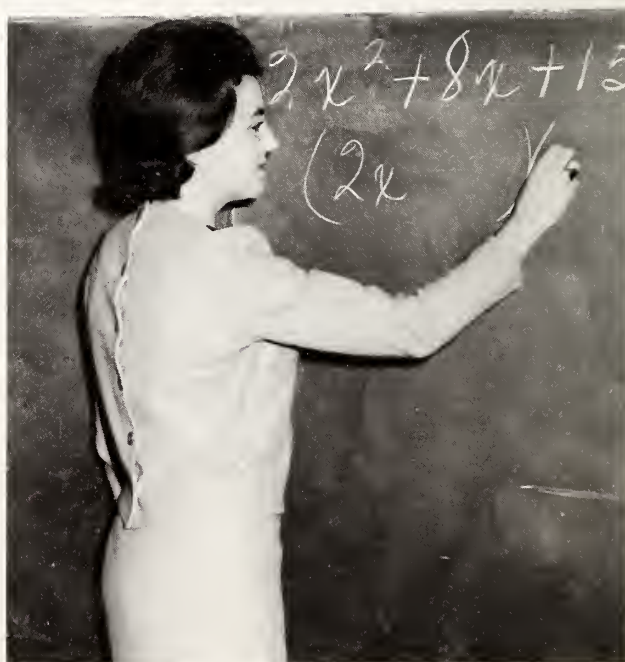 2x² + 8x + 15
(2x )(